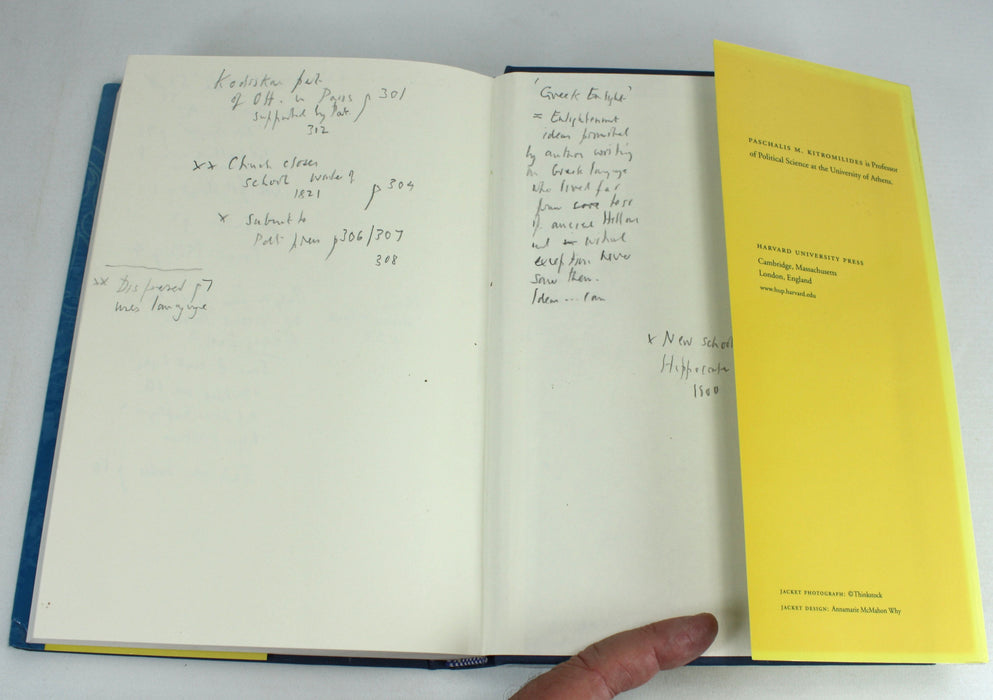 of Off. in Paris p 301
supported by Pat.
312
xx Church closes
school
1821
p 304
x submit to
Pat. p306/307
308
xx p7
uses language
'Greek Enlight'
= Enlightenment
ideas
by author writing
in Greek language
who lived far
from
of ancient Hellas
and
exception never
saw them.
Ideas ... can
x New school
1800
PASCHALIS M. KITROMILIDES is Professor
of Political Science at the University of Athens.
HARVARD UNIVERSITY PRESS
Cambridge, Massachusetts
London, England
www.hup.harvard.edu
JACKET PHOTOGRAPH: ©Thinkstock
JACKET DESIGN: Annamarie McMahon Why